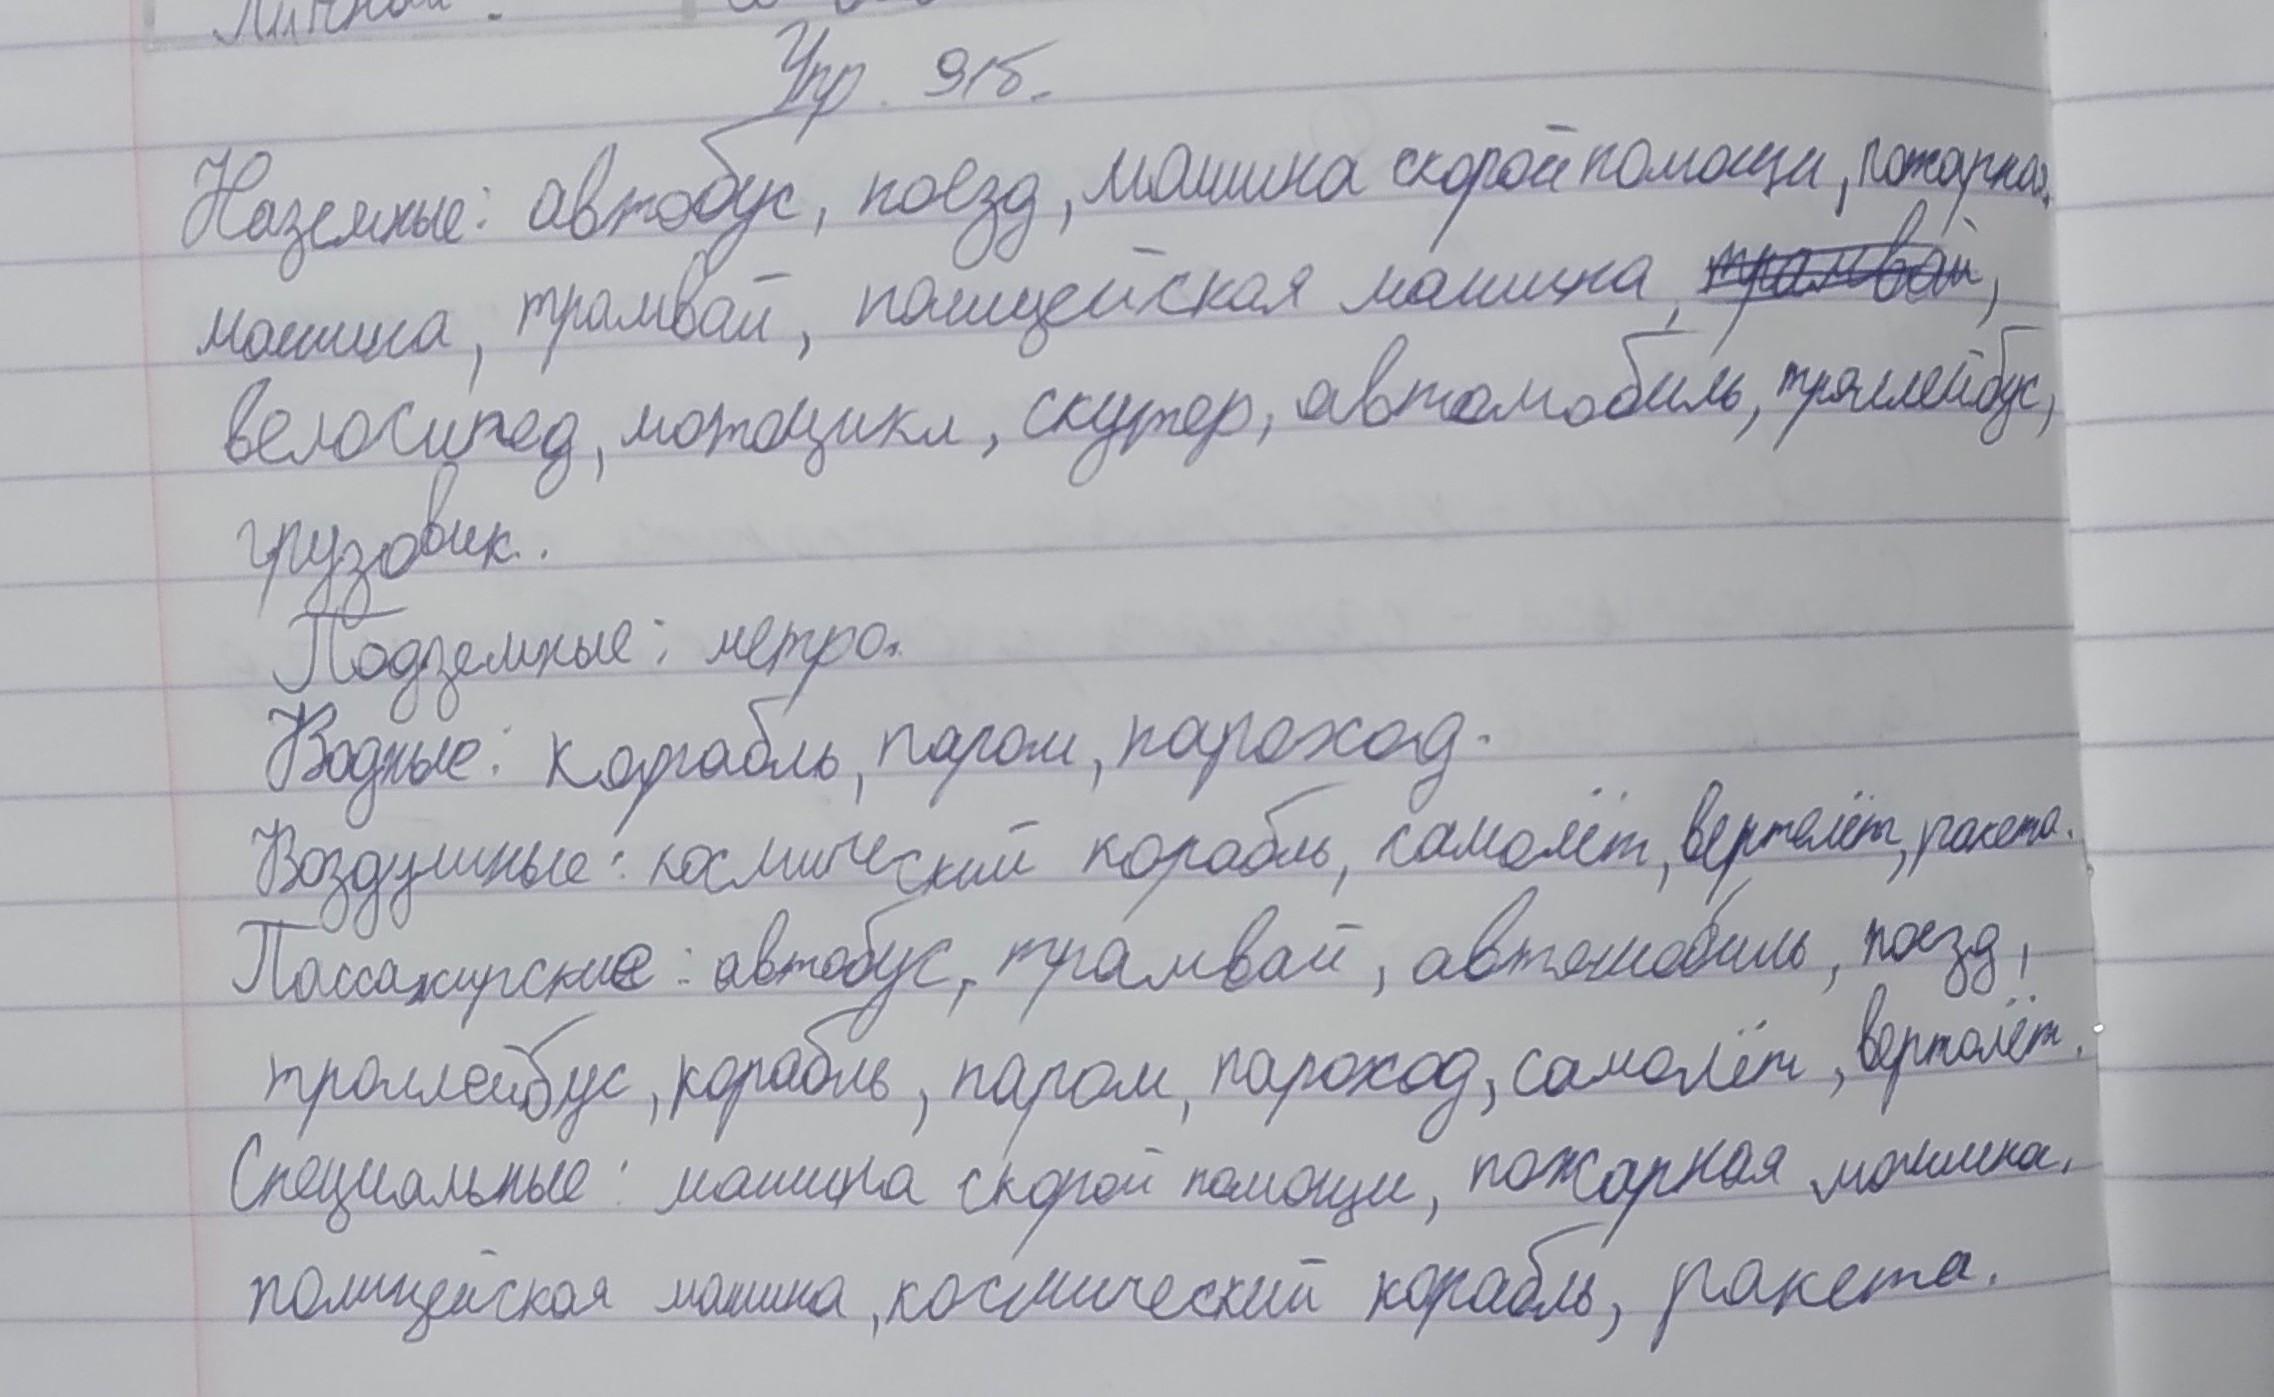 Упр. 91б.
Наземные: автобус, поезд, машина скорой помощи, пожарная
машина, трамвай, полицейская машина, трамвай,
велосипед, мотоцикл, скутер, автомобиль, троллейбус,
грузовик.
Подземные: метро.
Водные: корабль, паром, пароход.
Воздушные: космический корабль, самолёт, вертолёт, ракета.
Пассажирские: автобус, трамвай, автомобиль, поезд,
троллейбус, корабль, паром, пароход, самолёт, вертолёт.
Специальные: машина скорой помощи, пожарная машина,
полицейская машина, космический корабль, ракета.